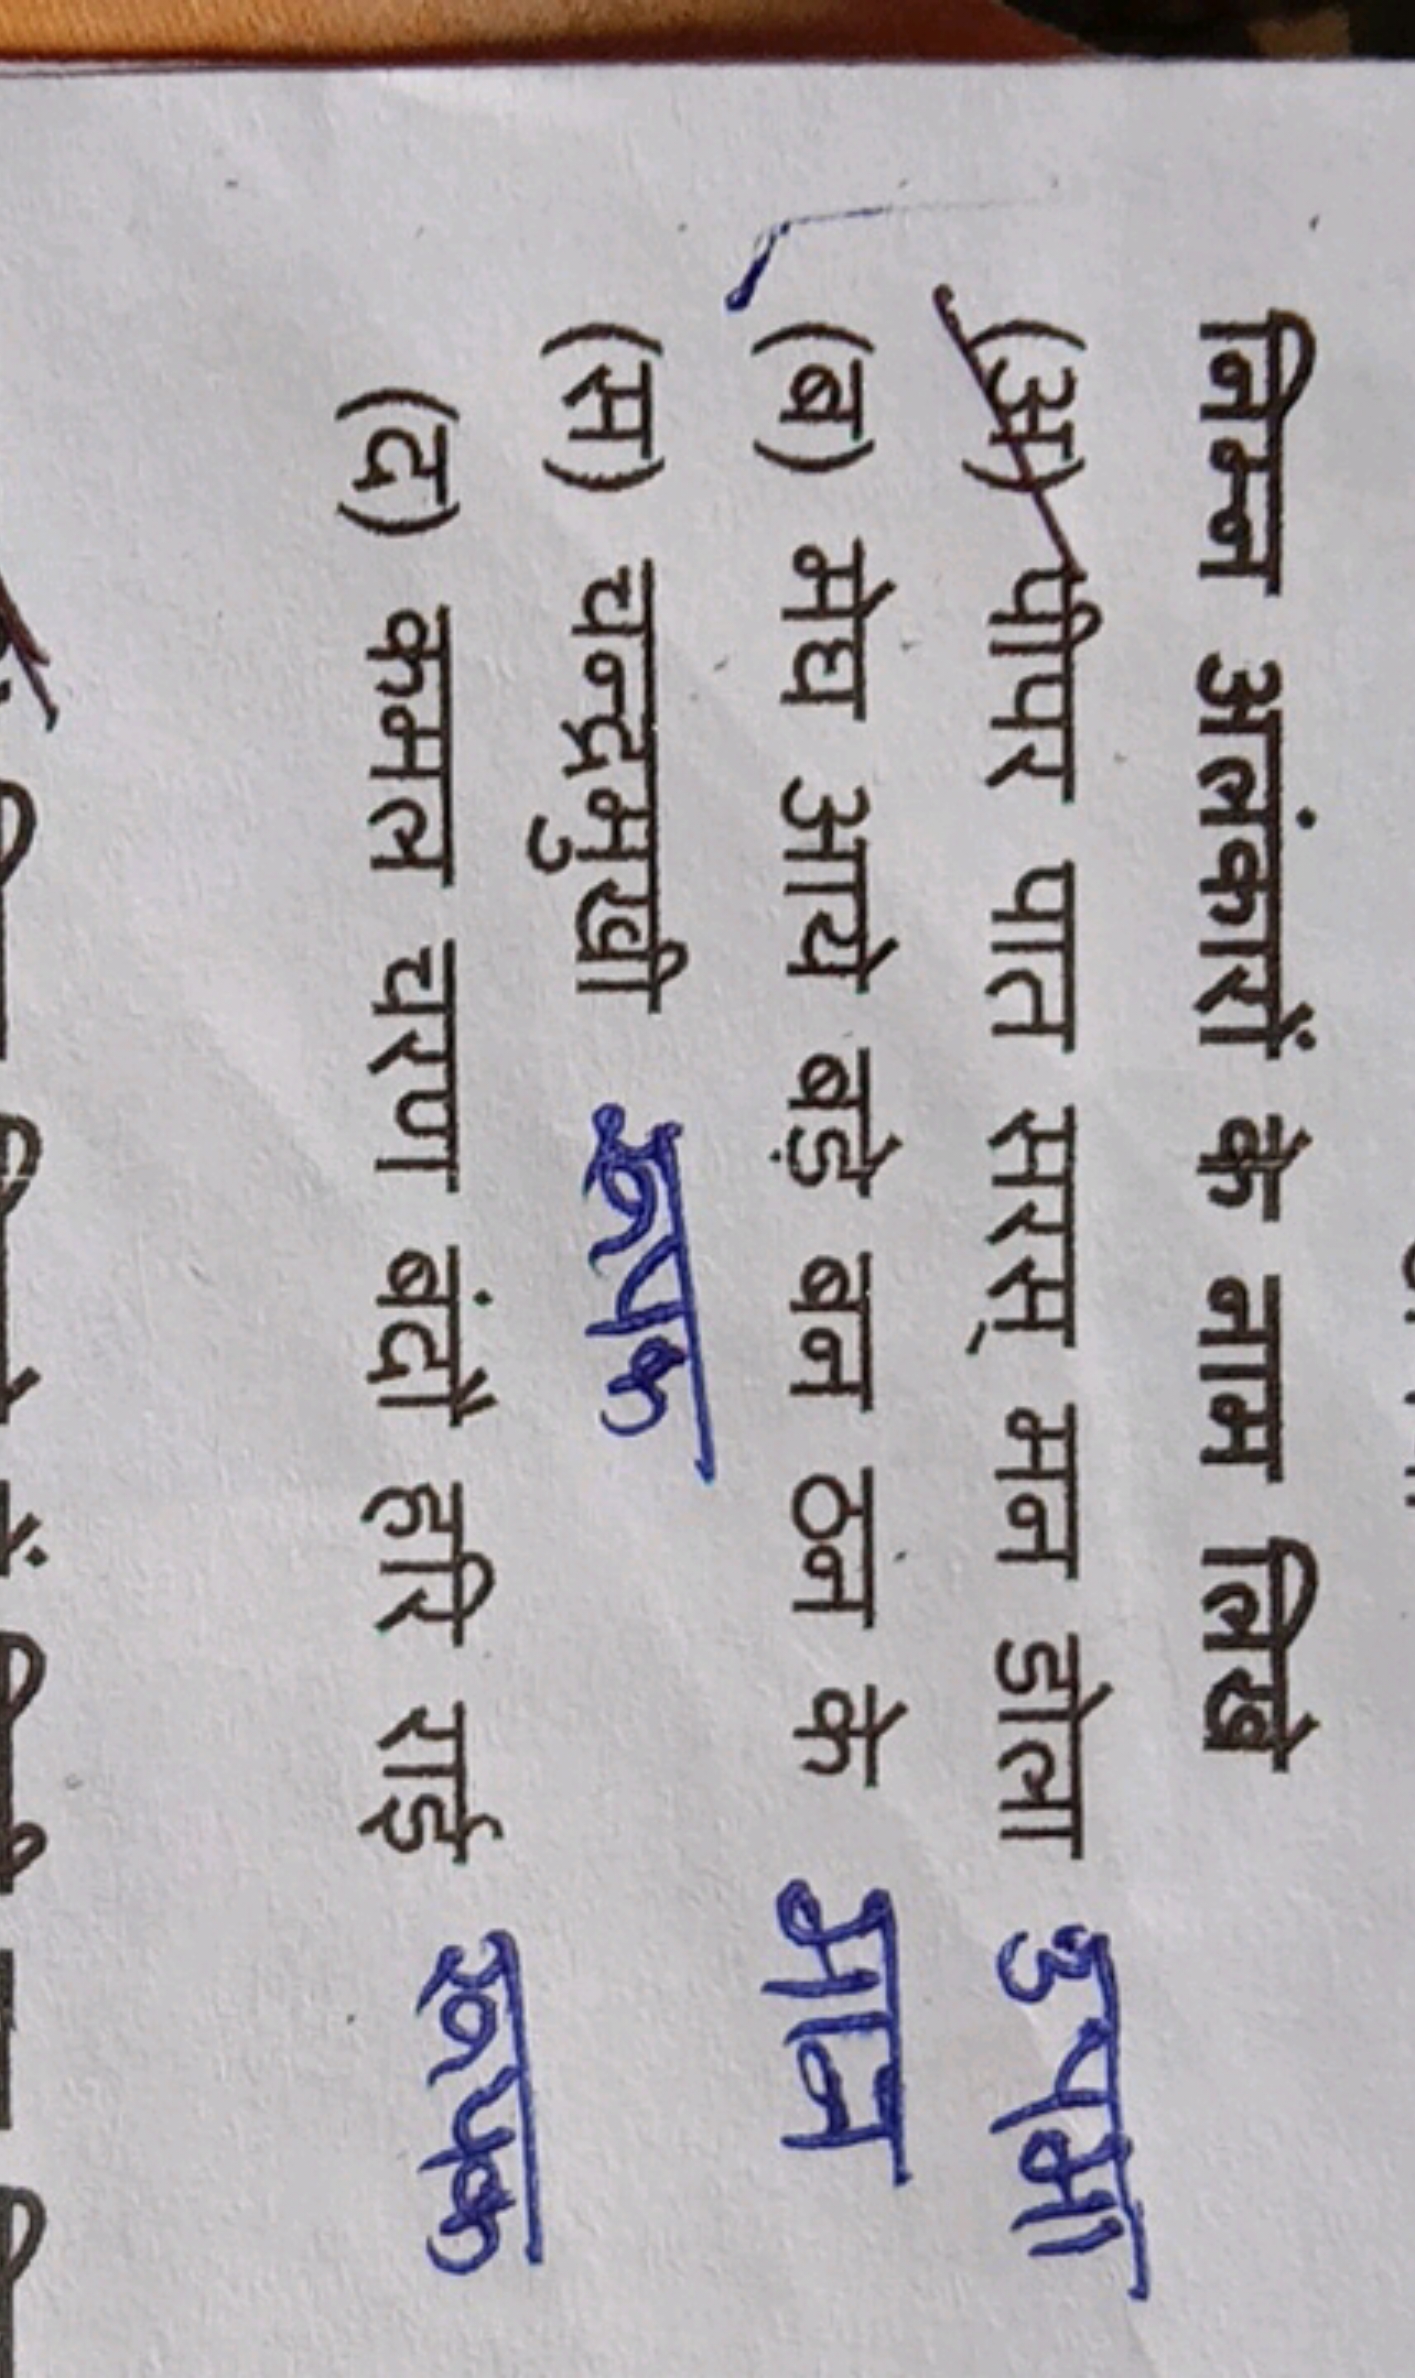 निम्न अलंकारों के नाम लिखे
(अ) पीपर पात सरस् मन डोला उपमा
(ब) मेघ आये बड़े बन ठन के मान
(स) चन्द्रमुखी रूपक
(द) कमल चरण बंदौ हरि राई रूपक